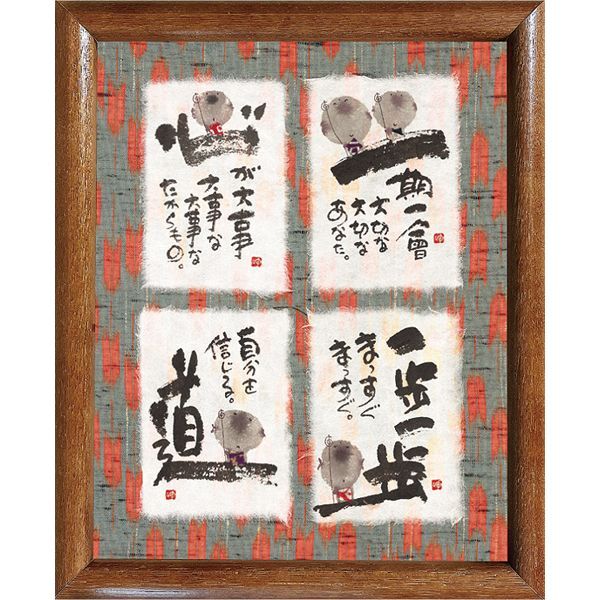 一期一會
大切な
大切な
あなた。
心
が大事
大事な
大事な
たからもの。
一歩一歩
まっすぐ
まっすぐ。
自分を
信じる。
道